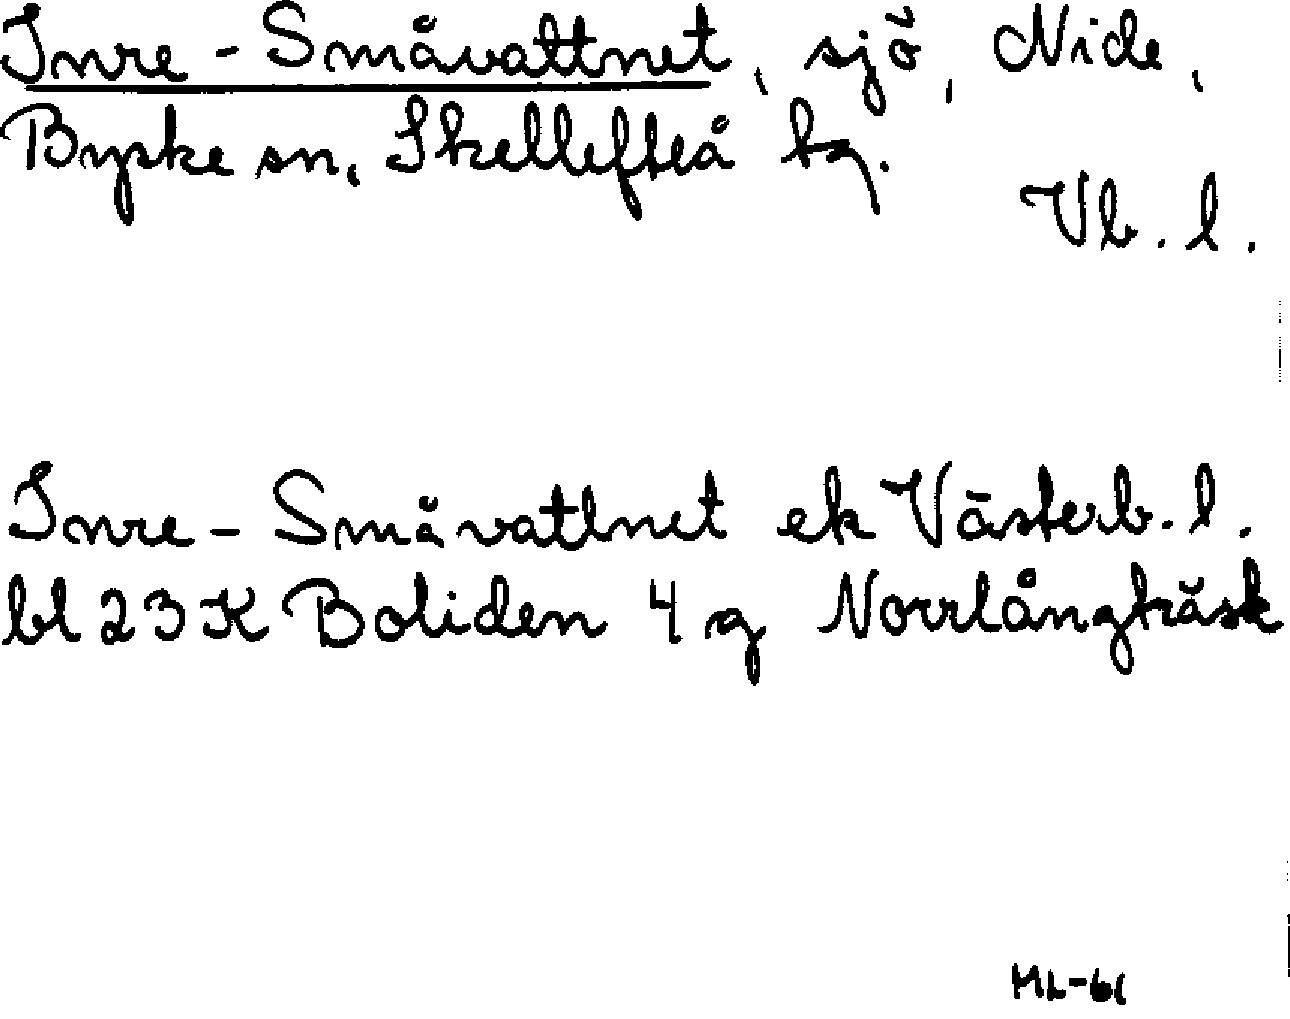 Inre-Småvattnet, sjö, Nide,
Byske sn, Skellefteå kg.
Vb. l.
Inre-Småvattnet ek Västerb. l.
bl 23 K Boliden 4 g Norrlångträsk
ML-61